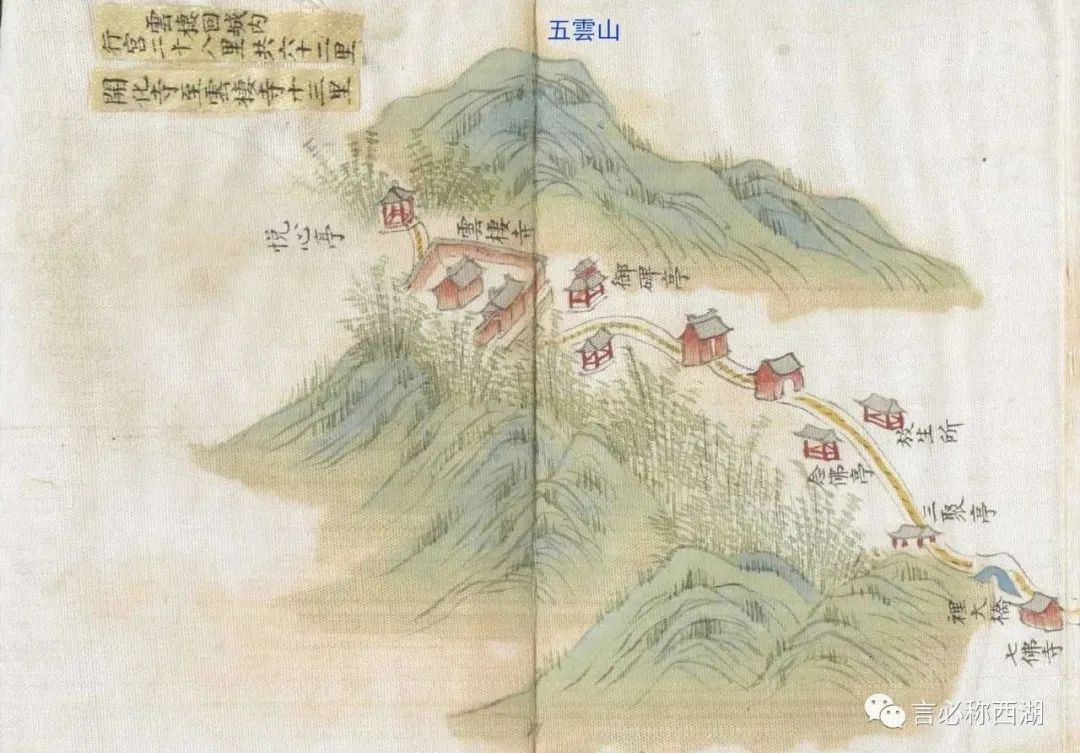 五雲山
雲棲回城内
行宫二十八里共六十二里
開化寺至雲棲寺十三里
悦心亭
雲棲寺
御碑亭
放生所
念佛亭
三聚亭
裡大橋
七佛寺
言必称西湖